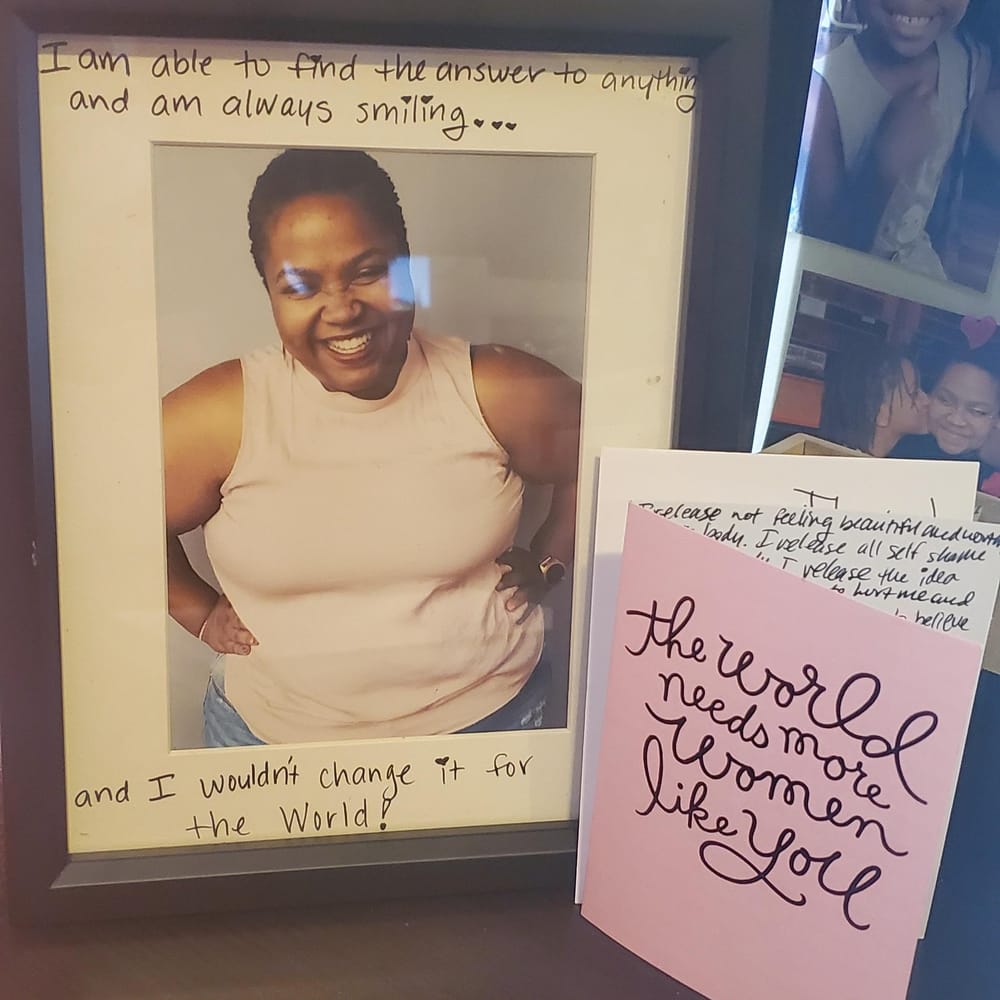 I am able to find the answer to anything
and am always smiling...
and I wouldn't change it for
the World!
I release not feeling beautiful and
body. I release all self shame
I release the idea
to hurt me and
believe
the world
needs more
women
like you